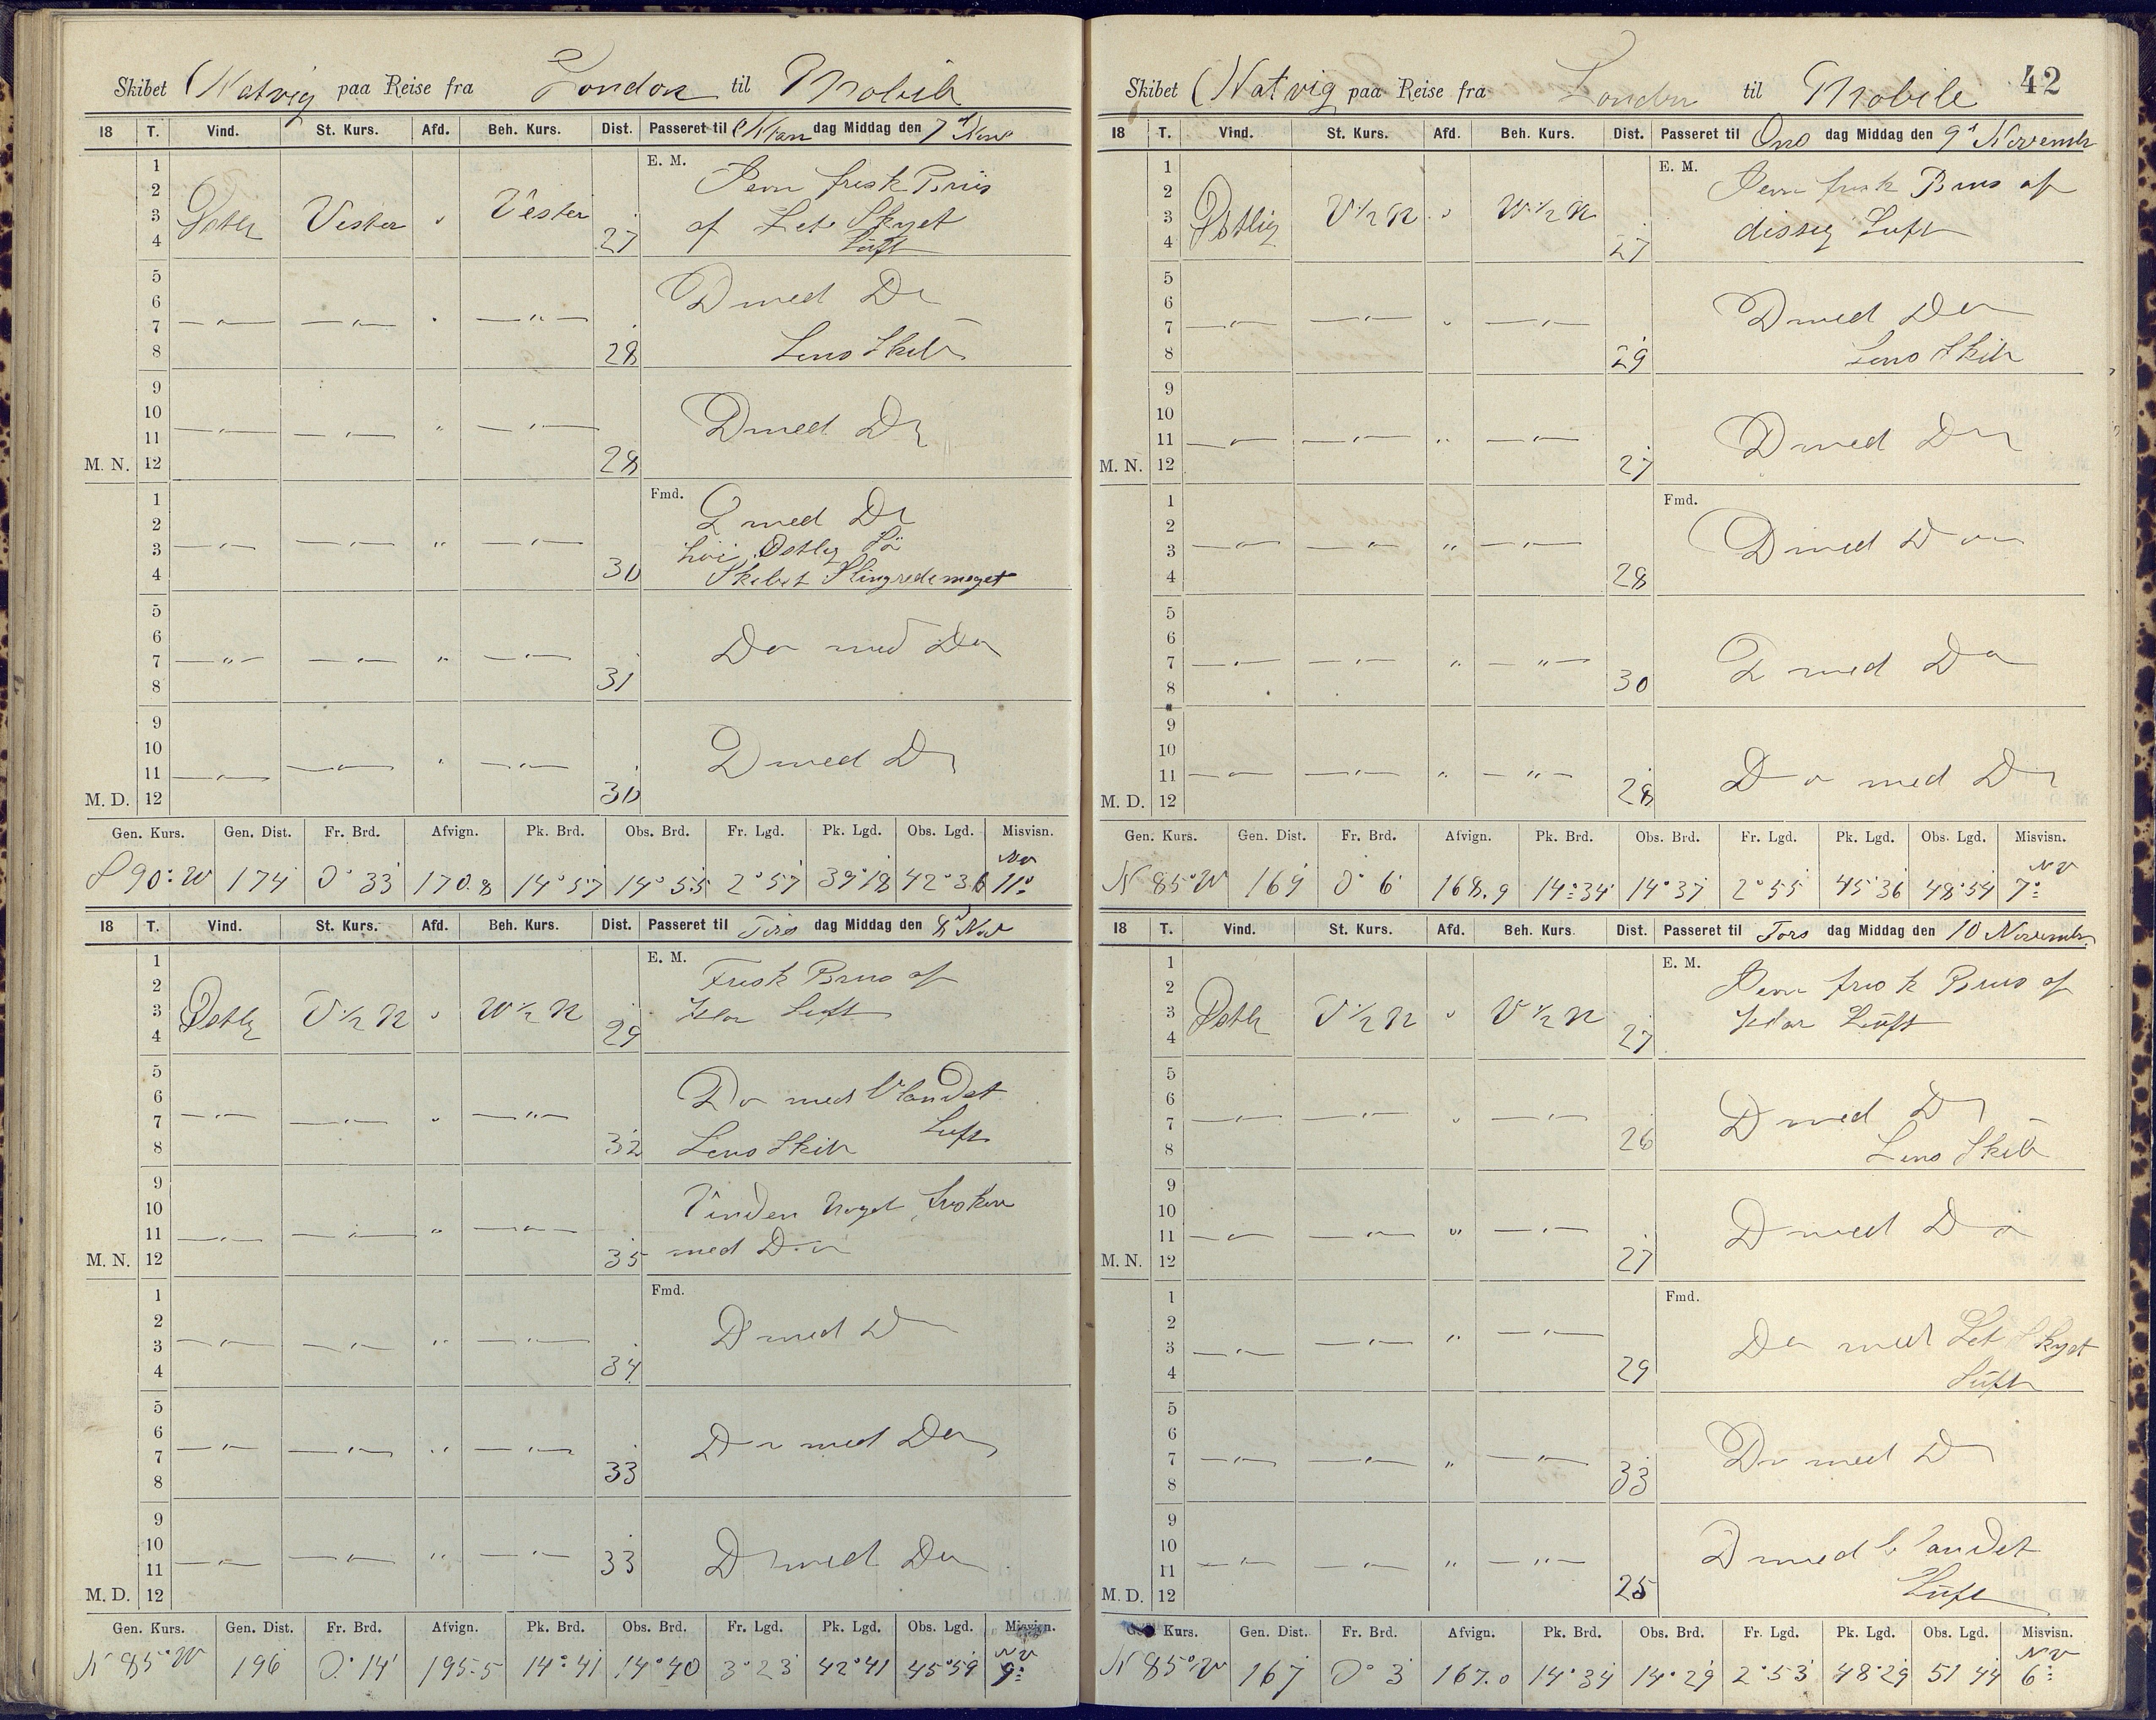 Skibet Natvig paa Reise fra London til Mobile
18 T. Vind. St. Kurs. Afd. Beh. Kurs. Dist. Passeret til Man dag Middag den 7d Nov
E. M.
1 2 3 4 Østlig Vester " Vester 27 Jevn frisk Bris
af Let Skyet
Luft
5 6 7 8 —"— —"— " —"— 28 D med Do
Lens Skib
9 10 11 M. N. 12 —"— —"— " —"— 28 D med Do
Fmd.
1 2 3 4 —"— —"— " —"— 30 D med Do
höi Østlig Sö
Skibet Slingrede meget
5 6 7 8 —"— —"— " —"— 31 Do med Do
9 10 11 M. D. 12 —"— —"— " —"— 30 D med Do
Gen. Kurs. Gen. Dist. Fr. Brd. Afvign. Pk. Brd. Obs. Brd. Fr. Lgd. Pk. Lgd. Obs. Lgd. Misvisn.
S 90° W 174 0° 33 170.8 14° 57 14° 55 2° 57 39° 18 42° 36 NV 11°
18 T. Vind. St. Kurs. Afd. Beh. Kurs. Dist. Passeret til Tirs dag Middag den 8d Nov
E. M.
1 2 3 4 Østlig V 1/2 N " W 1/2 N 29 Frisk Bris af
Klar Luft
5 6 7 8 —"— —"— " —"— 32 Do med Blandet
Luft
Lens Skib
9 10 11 M. N. 12 —"— —"— " —"— 35 Vinden noget friskere
med Do
Fmd.
1 2 3 4 —"— —"— " —"— 34 D med Do
5 6 7 8 —"— —"— " —"— 33 Do med Do
9 10 11 M. D. 12 —"— —"— " —"— 33 D med Do
Gen. Kurs. Gen. Dist. Fr. Brd. Afvign. Pk. Brd. Obs. Brd. Fr. Lgd. Pk. Lgd. Obs. Lgd. Misvisn.
N 85° W 196 0° 14' 195.5 14° 41 14° 40 3° 23 42° 41 45° 59 NV 9°
42
Skibet Natvig paa Reise fra London til Mobile
18 T. Vind. St. Kurs. Afd. Beh. Kurs. Dist. Passeret til Ons dag Middag den 9d November
E. M.
1 2 3 4 Østlig V 1/2 N " W 1/2 N 27 Jevn frisk Bris af
dissig Luft
5 6 7 8 —"— —"— " —"— 29 D med Do
Lens Skib
9 10 11 M. N. 12 —"— —"— " —"— 27 D med Do
Fmd.
1 2 3 4 —"— —"— " —"— 28 D med Do
5 6 7 8 —"— —"— " —"— 30 D med Do
9 10 11 M. D. 12 —"— —"— " —"— 28 Do med Do
Gen. Kurs. Gen. Dist. Fr. Brd. Afvign. Pk. Brd. Obs. Brd. Fr. Lgd. Pk. Lgd. Obs. Lgd. Misvisn.
N 85° W 169 0° 6 168.9 14° 34 14° 37 2° 55 45° 36 48° 54 NV 7°
18 T. Vind. St. Kurs. Afd. Beh. Kurs. Dist. Passeret til Tors dag Middag den 10 November
E. M.
1 2 3 4 Østlig V 1/2 N " V 1/2 N 27 Jevn frisk Bris af
Klar Luft
5 6 7 8 —"— —"— " —"— 26 D med Do
Lens Skib
9 10 11 M. N. 12 —"— —"— " —"— 27 D med Do
Fmd.
1 2 3 4 —"— —"— " —"— 29 Do med Let Skyet
Luft
5 6 7 8 —"— —"— " —"— 33 Do med Do
9 10 11 M. D. 12 —"— —"— " —"— 25 D med blandet
Luft
Gen. Kurs. Gen. Dist. Fr. Brd. Afvign. Pk. Brd. Obs. Brd. Fr. Lgd. Pk. Lgd. Obs. Lgd. Misvisn.
N 85° W 167 0° 3 167.0 14° 34 14° 29 2° 53 48° 29 51 44 NV 6°